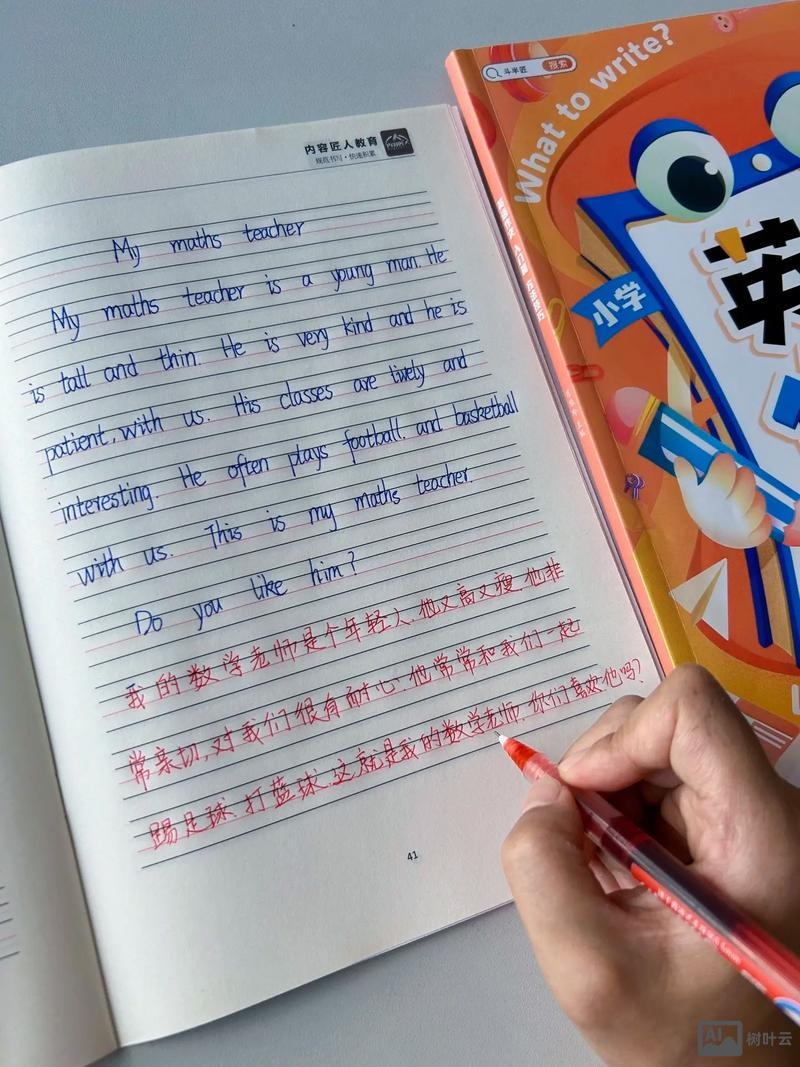 内容匠人教育
规范书写·快速积累
My maths teacher
My maths teacher is a young man. He
is tall and thin. He is very kind and he is
patient, with us. His classes are lively and
interesting. He often plays football. and basketball
with us. This is my maths teacher.
Do you like him?
我的数学老师是个年轻人.他又高又瘦.他非
常亲切,对我们很有耐心.他常常和我们一起
踢足球、打蓝球.这就是我的数学老师.你们喜欢他吗?
41
斗半匠
搜索
What to write?
小学
英
树叶云